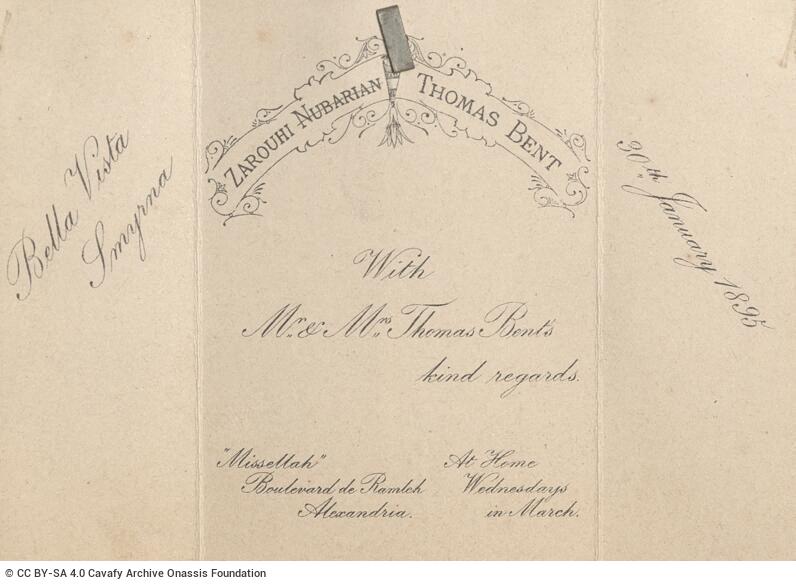 Bella Vista
Smyrna
ZAROUHI NUBARIAN
THOMAS BENT
30th January 1895
With
Mr. & Mrs. Thomas Bent's
kind regards.
"Missellah"
Boulevard de Ramleh
Alexandria.
At Home
Wednesdays
in March.
© CC BY-SA 4.0 Cavafy Archive Onassis Foundation